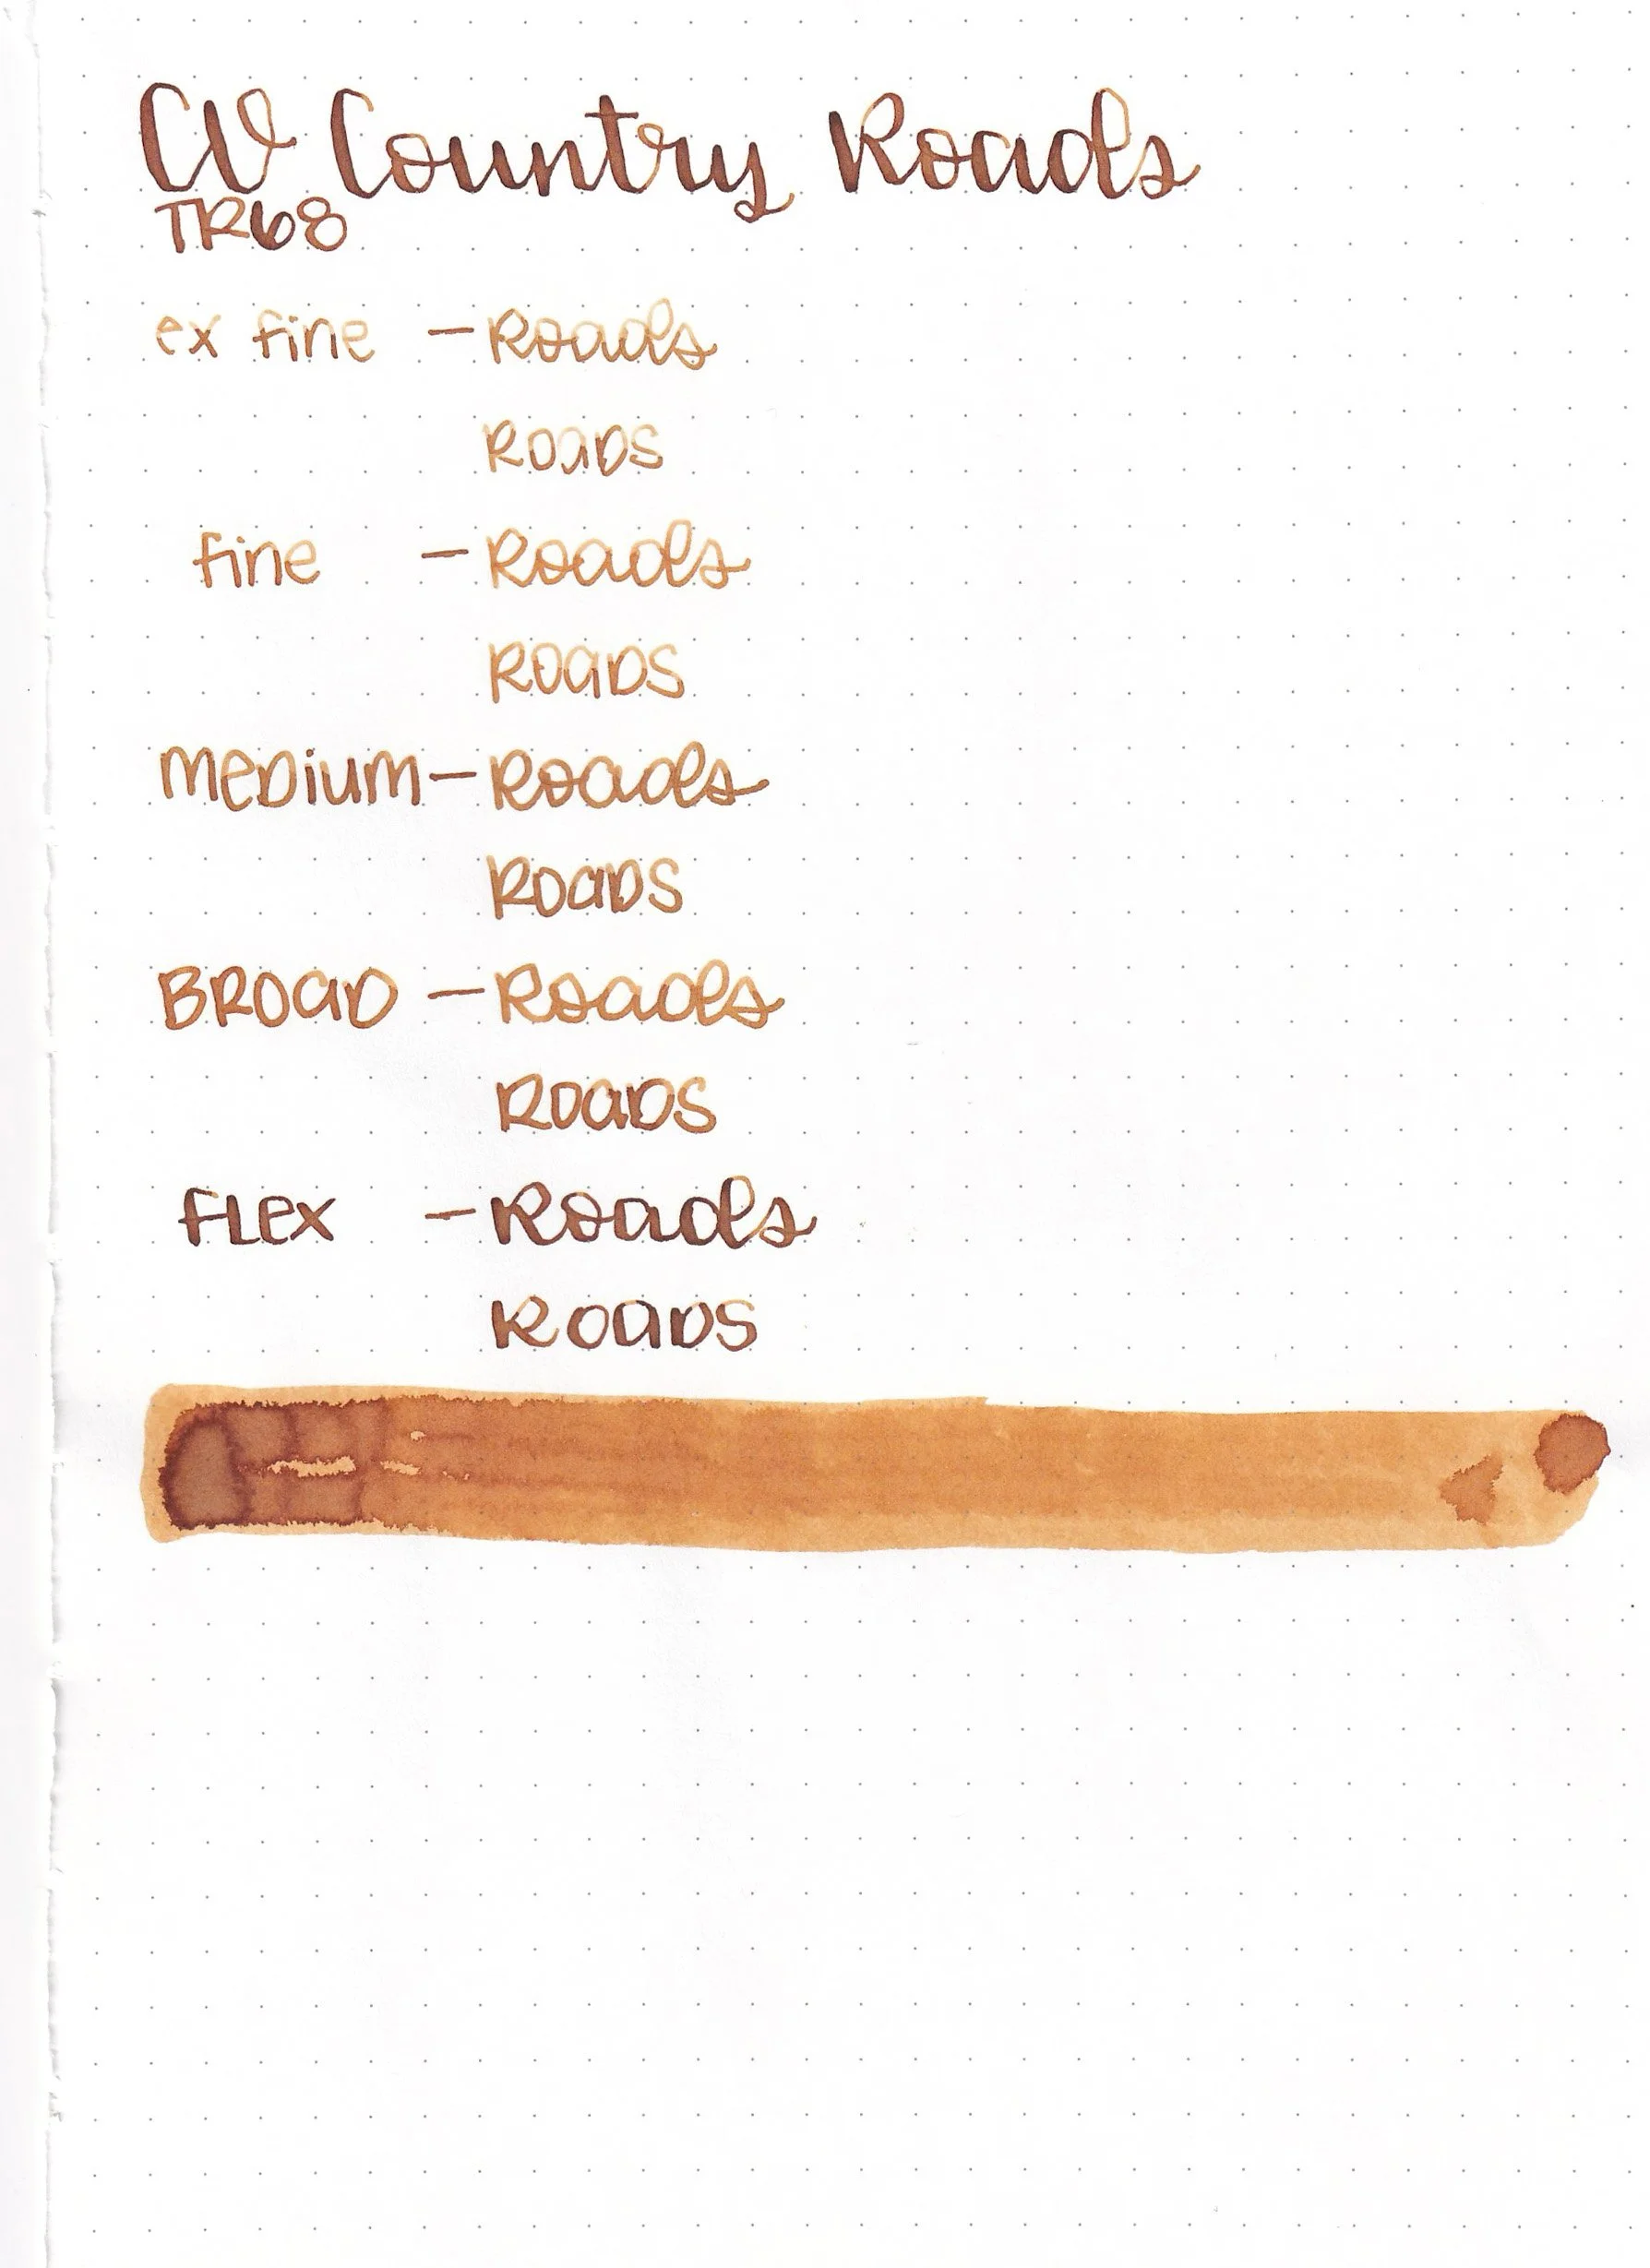 CV Country Roads
TR68
ex fine - Roads
ROADS
fine - Roads
ROADS
MEDIUM - Roads
ROADS
BROAD - Roads
ROADS
FLEX - Roads
ROADS